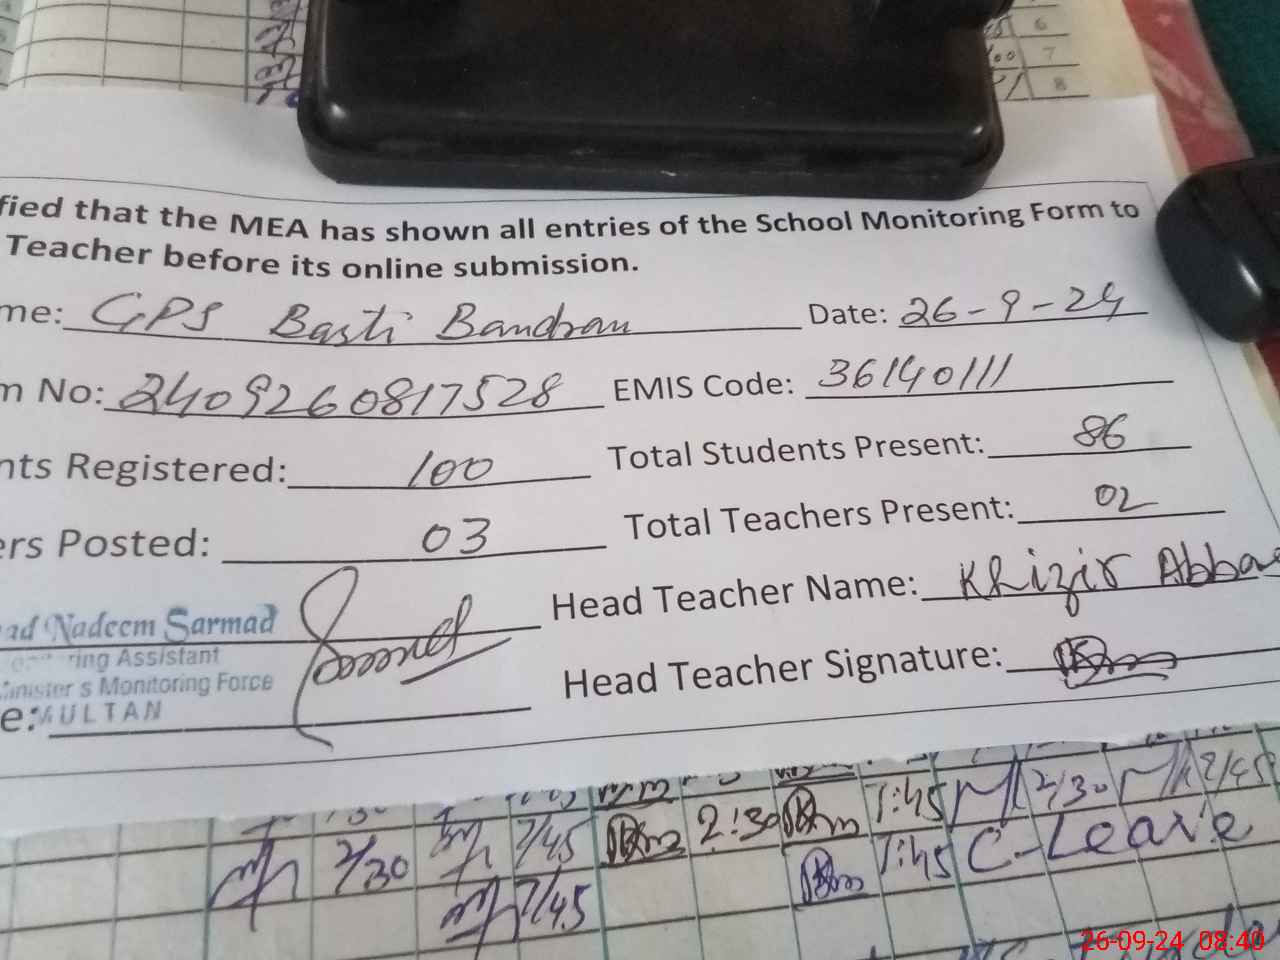 6
7
8
fied that the MEA has shown all entries of the School Monitoring Form to
Teacher before its online submission.
me: GPS Basti Bandran Date: 26-9-24
m No: 2409260817528 EMIS Code: 36140111
nts Registered: 100 Total Students Present: 86
ers Posted: 03 Total Teachers Present: 02
ad Nadeem Sarmad Head Teacher Name: Khizir Abbas
ring Assistant
Minister s Monitoring Force Head Teacher Signature:
e: MULTAN
2/30 7/45 2:30 7:45 2/30 7/45
7/45 7:45 C-Leave
26-09-24 08:40